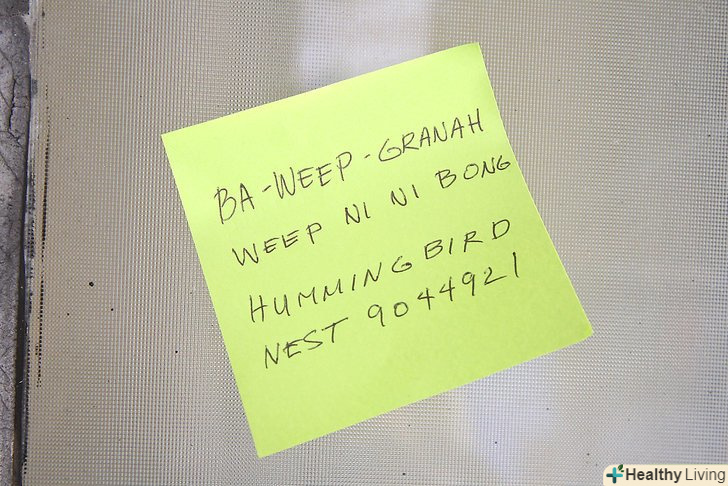 BA-WEEP-GRANAH
WEEP NI NI BONG
HUMMINGBIRD
NEST 9044921
Healthy Living